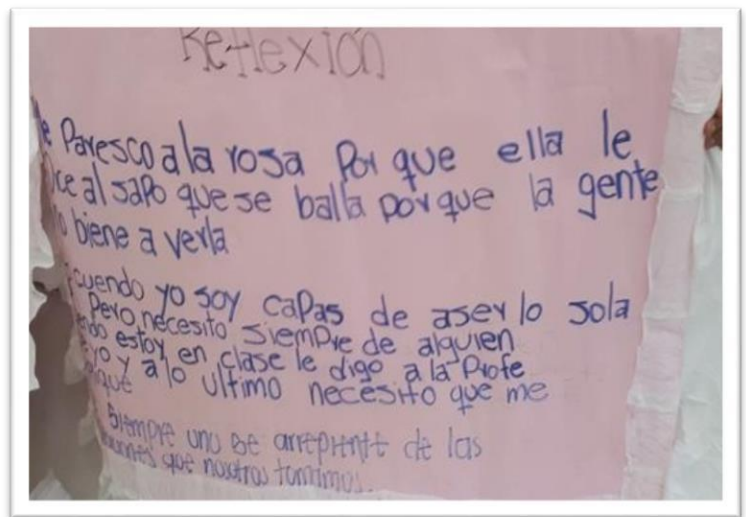 Reflexión
Paresco a la rosa Por que ella le
al sapo que se balla porque la gente
biene a verla
cuendo yo soy capas de aserlo sola
Pero necesito siempre de alguien
estoy en clase le digo a la Profe
yo y a lo ultimo necesito que me
Siempre uno se arrepiente de las
que nosotros tomamos.